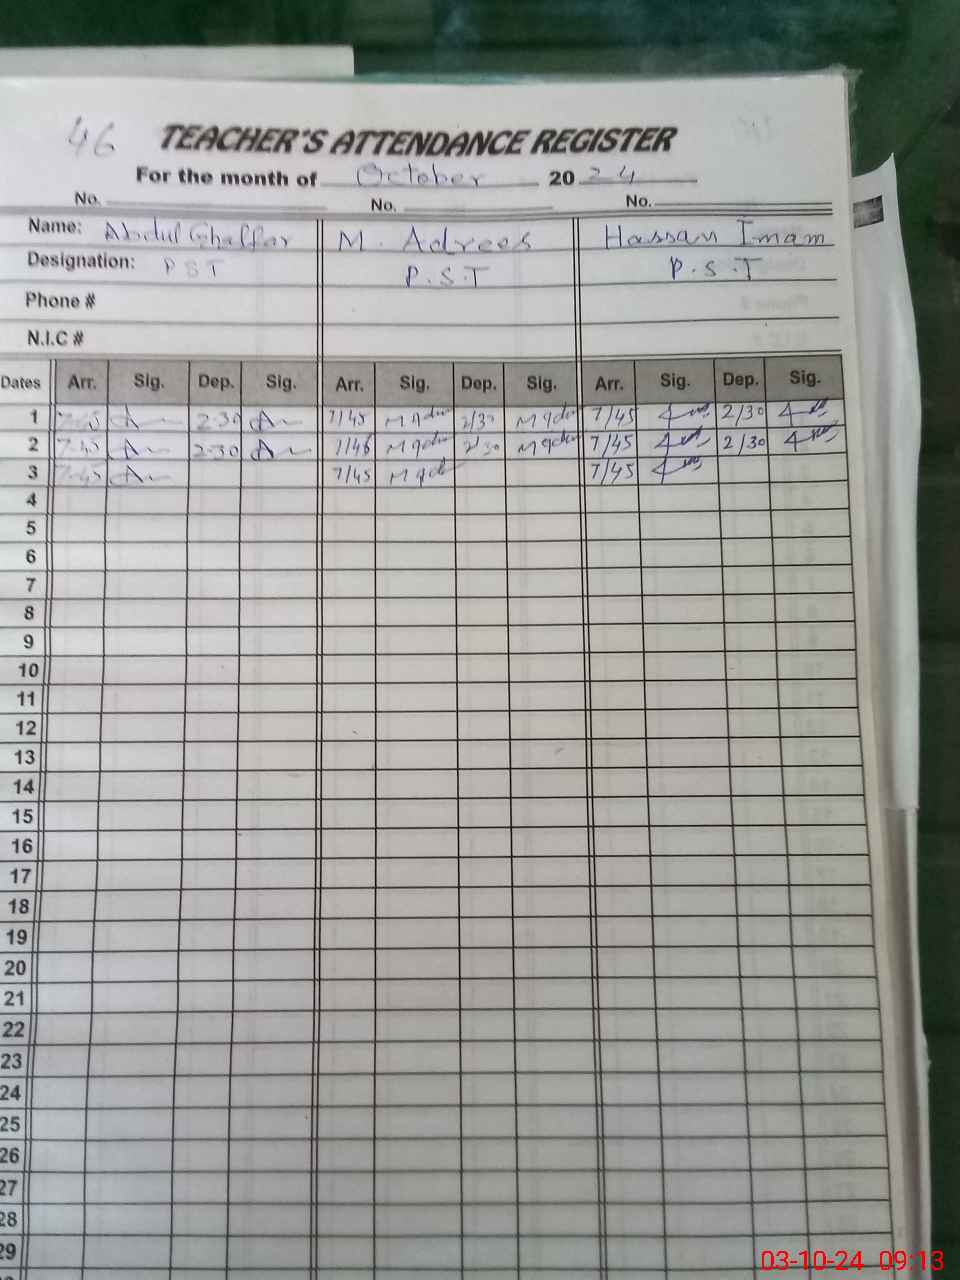 46 TEACHER'S ATTENDANCE REGISTER
For the month of October 20 24
No. No. No.
Name: Abdul Ghaffar M. Adrees Hassan Imam
Designation: PST P.S.T P.S.T
Phone #
N.I.C #
Dates Arr. Sig. Dep. Sig. Arr. Sig. Dep. Sig. Arr. Sig. Dep. Sig.
1 7-45 2-30 7/45 2/30 7/45 2/30
2 7-45 2-30 7/46 2/30 7/45 2/30
3 7-45 7/45 7/45
4
5
6
7
8
9
10
11
12
13
14
15
16
17
18
19
20
21
22
23
24
25
26
27
28
29
03-10-24 09:13